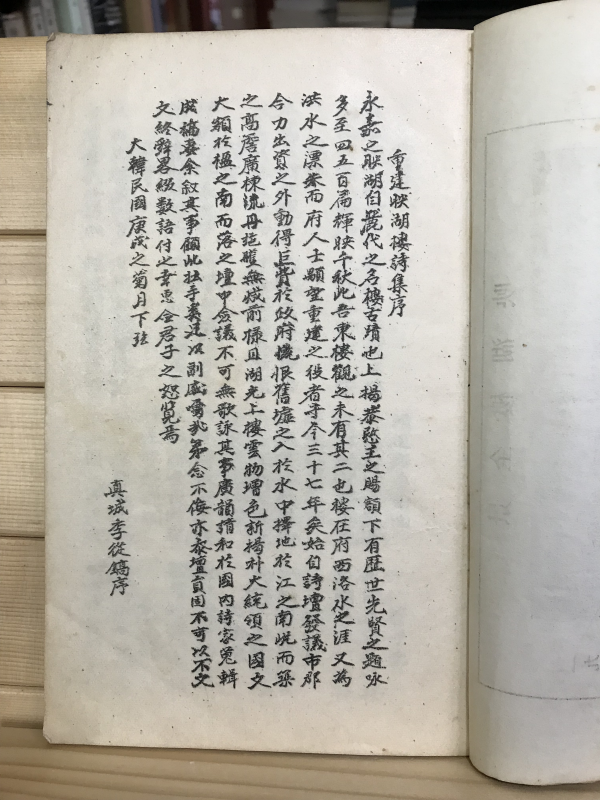 重建映湖樓詩集序
永嘉之映湖自麗代之名樓古蹟也上揭恭愍主之賜額下有歷世先賢之題咏
多至四五百篇輝映千秋此吾東樓觀之未有其二也樓在府西洛水之涯又為
洪水之漂 而府人士顒望重建之役者于今三十七年矣始自詩壇發議市郡
合力出資之外動得巨貲於政府慨恨舊墟之入於水中擇地於江之南岸而築
之高甍廣棟流丹 雘無減前樣且湖光上樓雲物增色新揭朴大統領之國文
大額於楹之南而落之壇中僉議不可無歌詠其事廣韻 和於國內詩家蒐輯
成編要余叙其事顧此拙手奚足以副盛囑哉第念不佞亦忝壇員固不可以不文
文終辭畧綴數語付之幸惠僉君子之恕覽焉
大韓民國庚戌之菊月下弦
真城李從鎬序